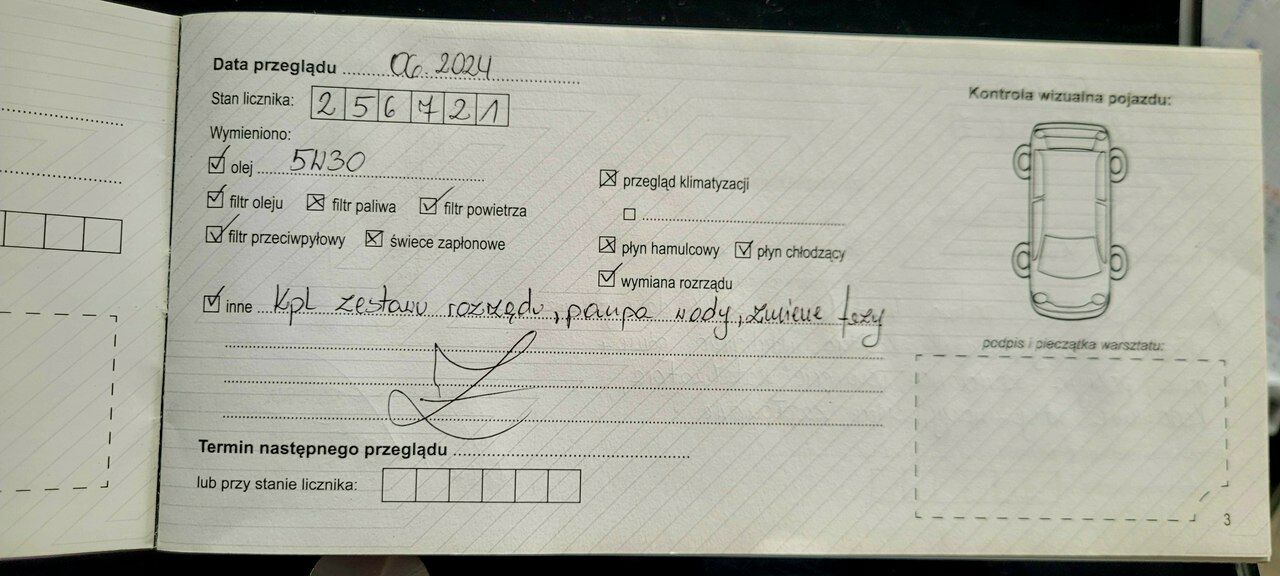 Data przeglądu ........ 06. 2024
Stan licznika: 256721
Wymieniono:
☑ olej ..... 5W30
☒ przegląd klimatyzacji
☑ filtr oleju ☒ filtr paliwa ☑ filtr powietrza
☐ ........
☑ filtr przeciwpyłowy ☒ świece zapłonowe
☒ płyn hamulcowy ☑ płyn chłodzący
☑ wymiana rozrządu
☑ inne kpl zestawu rozrządu, pompa wody,
Termin następnego przeglądu ........
lub przy stanie licznika:
Kontrola wizualna pojazdu:
podpis i pieczątka warsztatu:
3